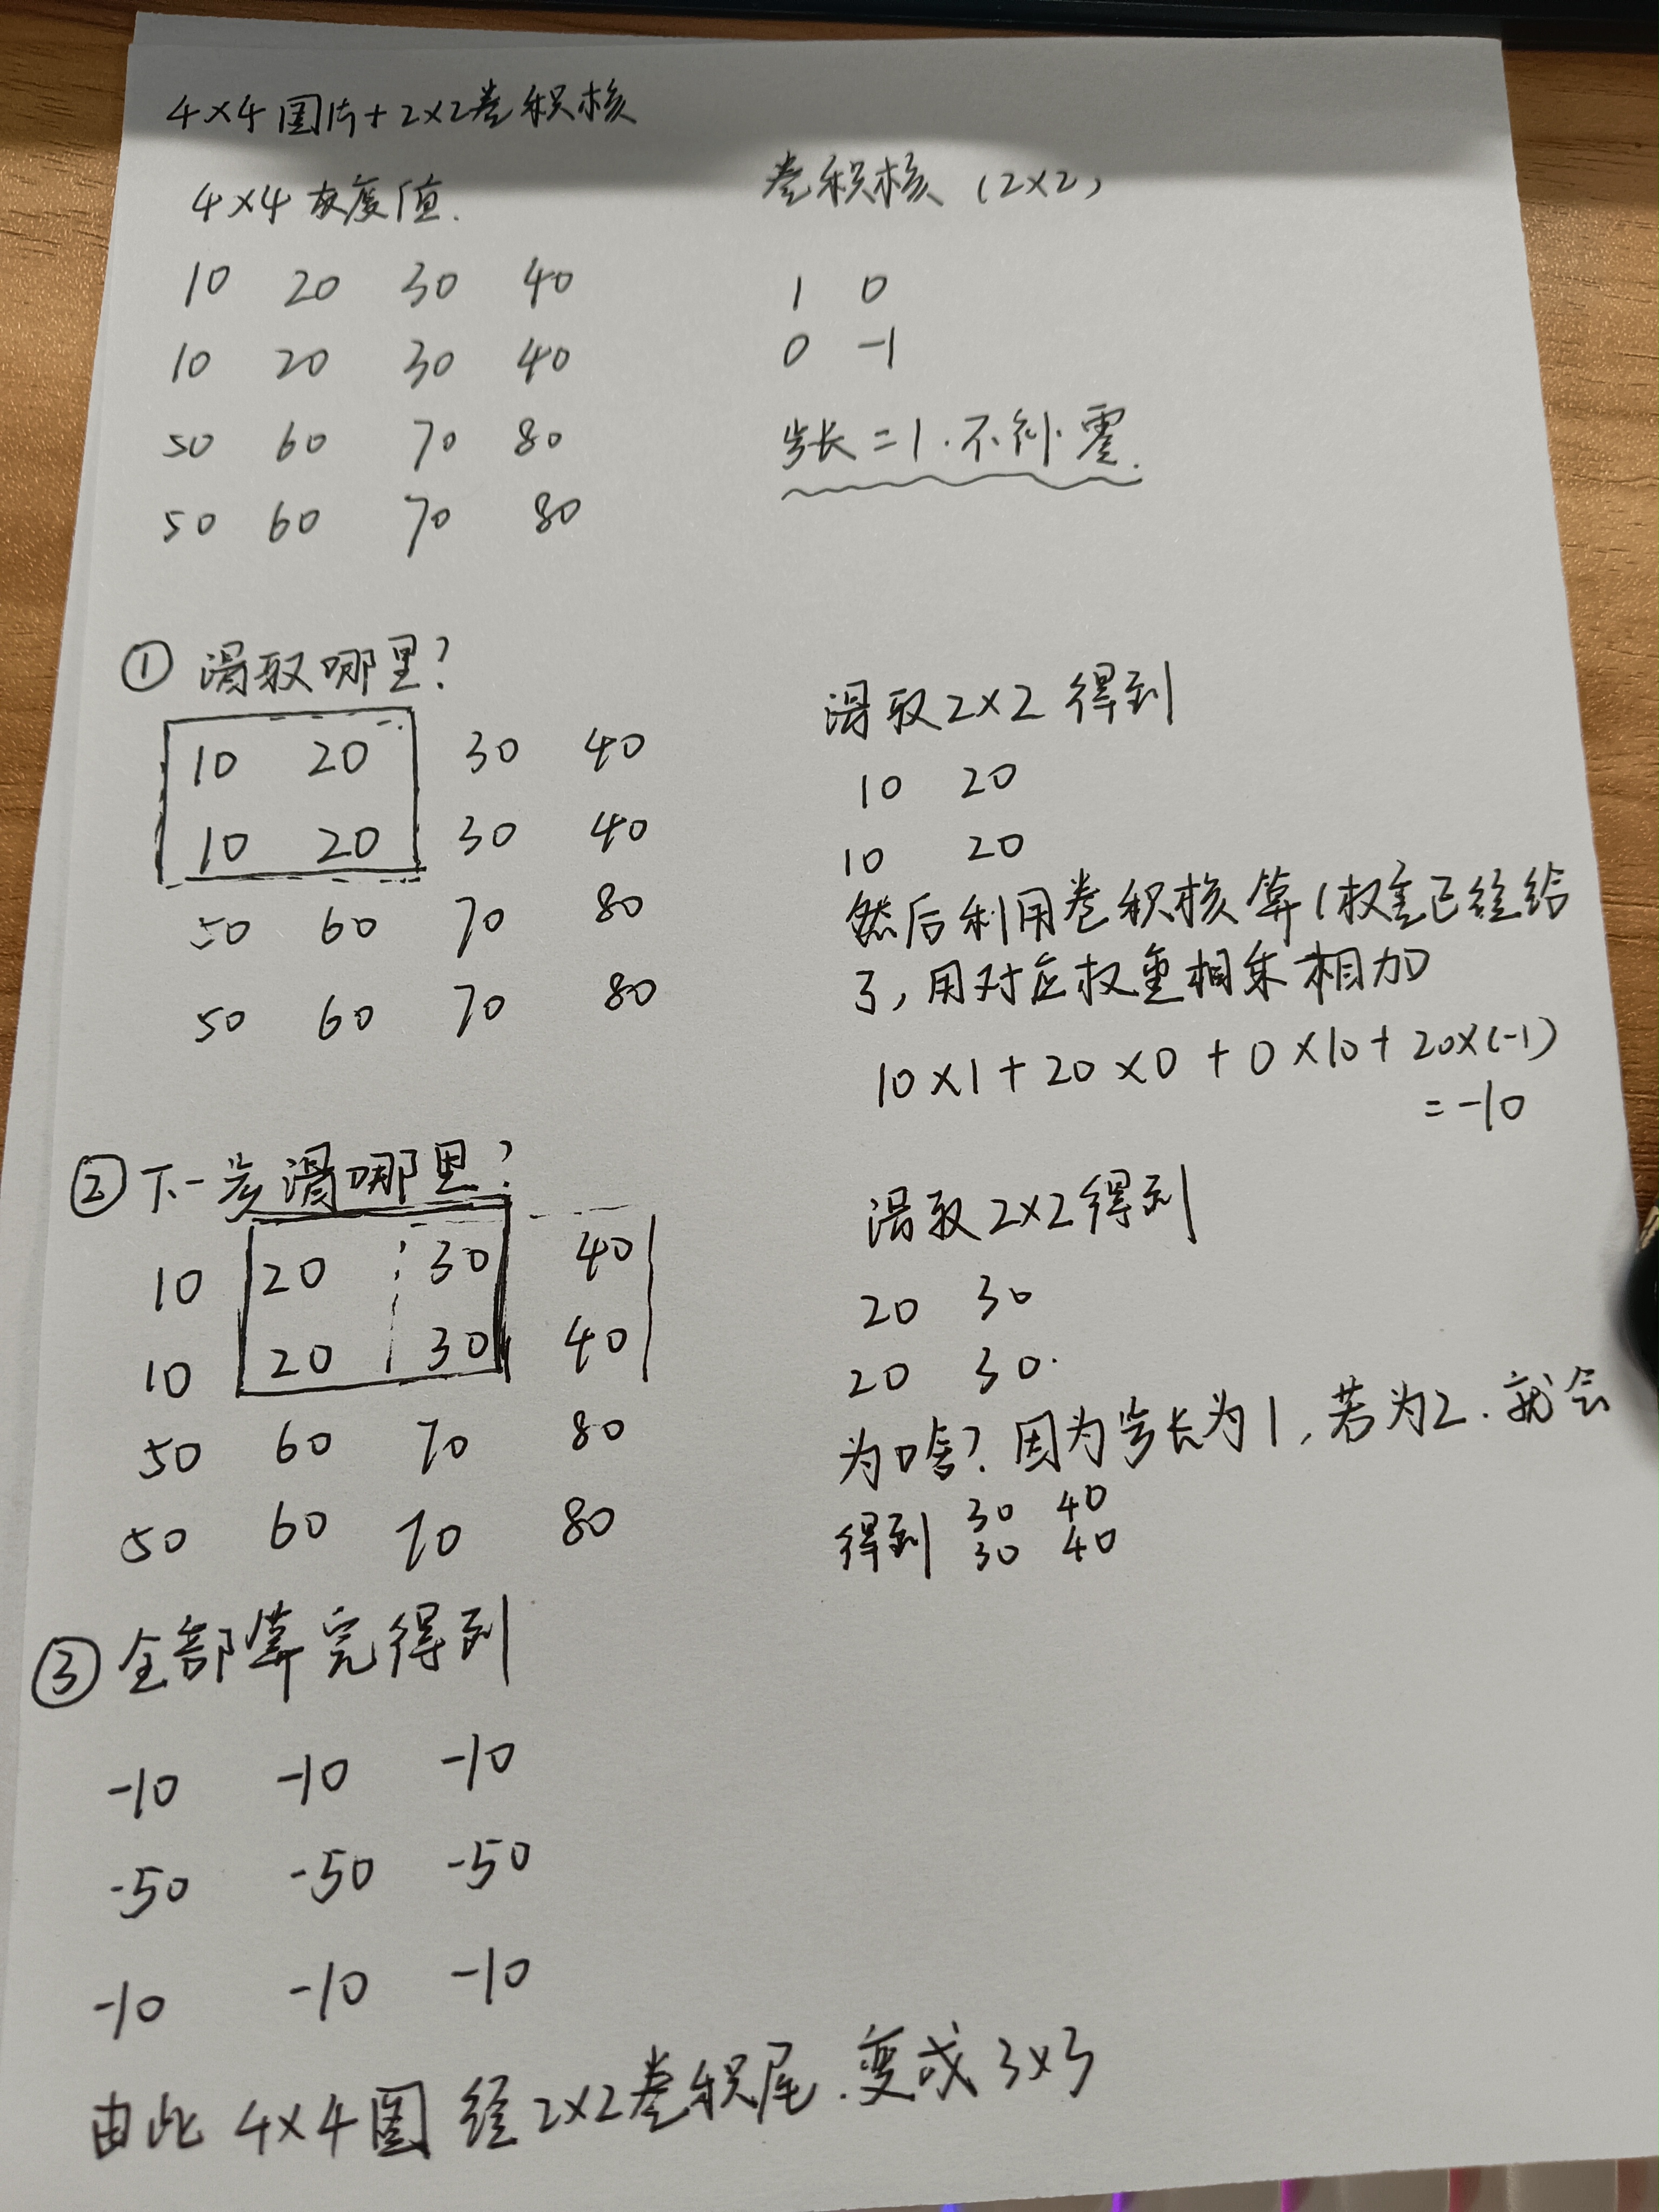 4×4图片+2×2卷积核
4×4灰度值.
10 20 30 40
10 20 30 40
50 60 70 80
50 60 70 80
卷积核(2×2)
1 0
0 -1
步长=1.不补零.
① 滑取哪里?
10 20 30 40
10 20 30 40
50 60 70 80
50 60 70 80
滑取2×2得到
10 20
10 20
然后利用卷积核算(权重已经给
了,用对应权重相乘相加
10×1+20×0+0×10+20×(-1)
=-10
②下一步滑哪里?
10 20 30 40
10 20 30 40
50 60 70 80
50 60 70 80
滑取2×2得到
20 30
20 30.
为啥?因为步长为1,若为2.就会
得到 30 40
30 40
③全部算完得到
-10 -10 -10
-50 -50 -50
-10 -10 -10
由此4×4图 经2×2卷积尾.变成3×3